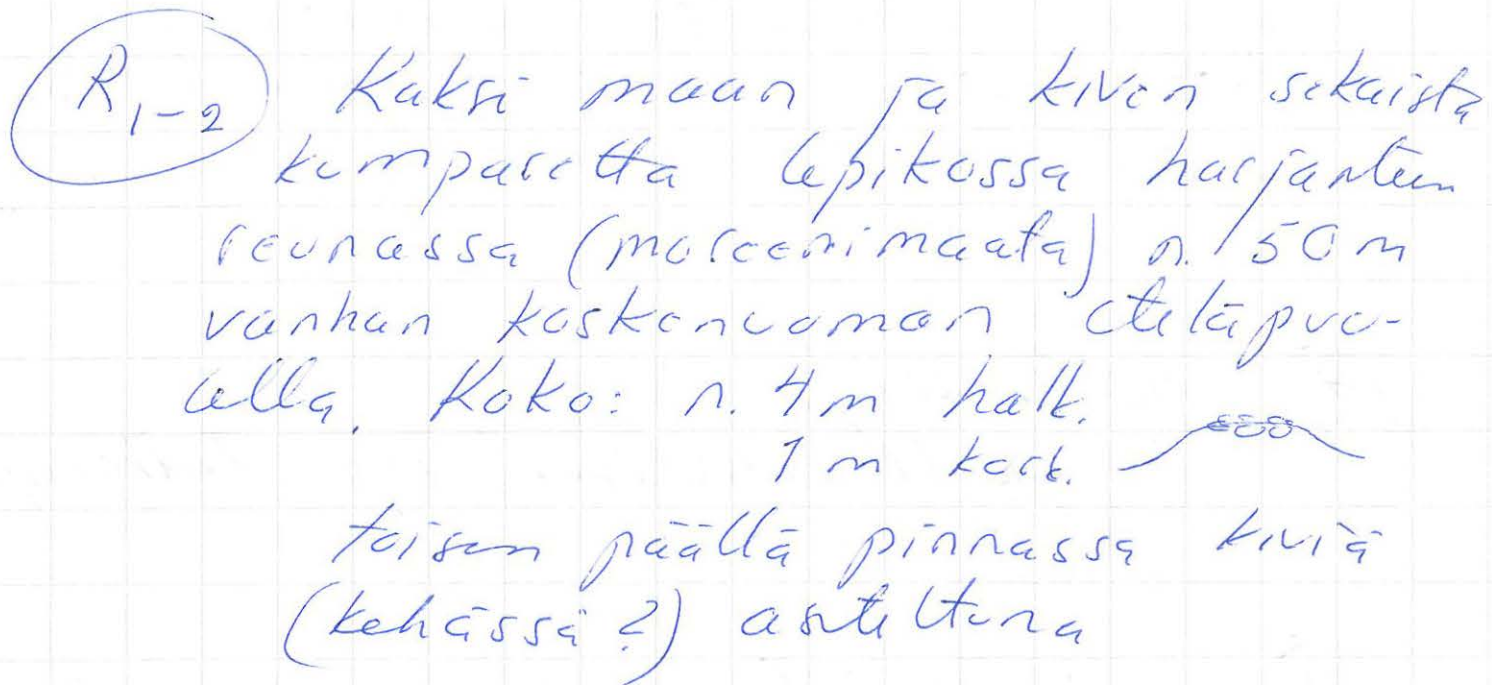 R1-2 Kaksi maan ja kiven sekaista
kumparetta lepikossa harjanteen
reunassa (moreenimaata) n. 50 m
vanhan koskenuoman eteläpuo-
lella. Koko: n. 4 m halk.
1 m kork.
toisen päällä pinnassa kiviä
(kehässä?) aseteltuna